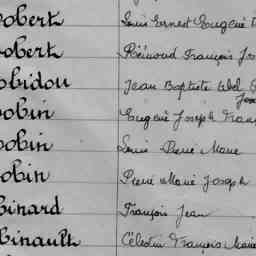 obert Louis Ernest Eugène
obert Raimond François Jo
obidou Jean Baptiste Abel
Jose
obin Eugène Joseph Franç
obin Louis Pierre Marie
obin Pierre Marie Joseph
binard François Jean
binault Célestin François Marie